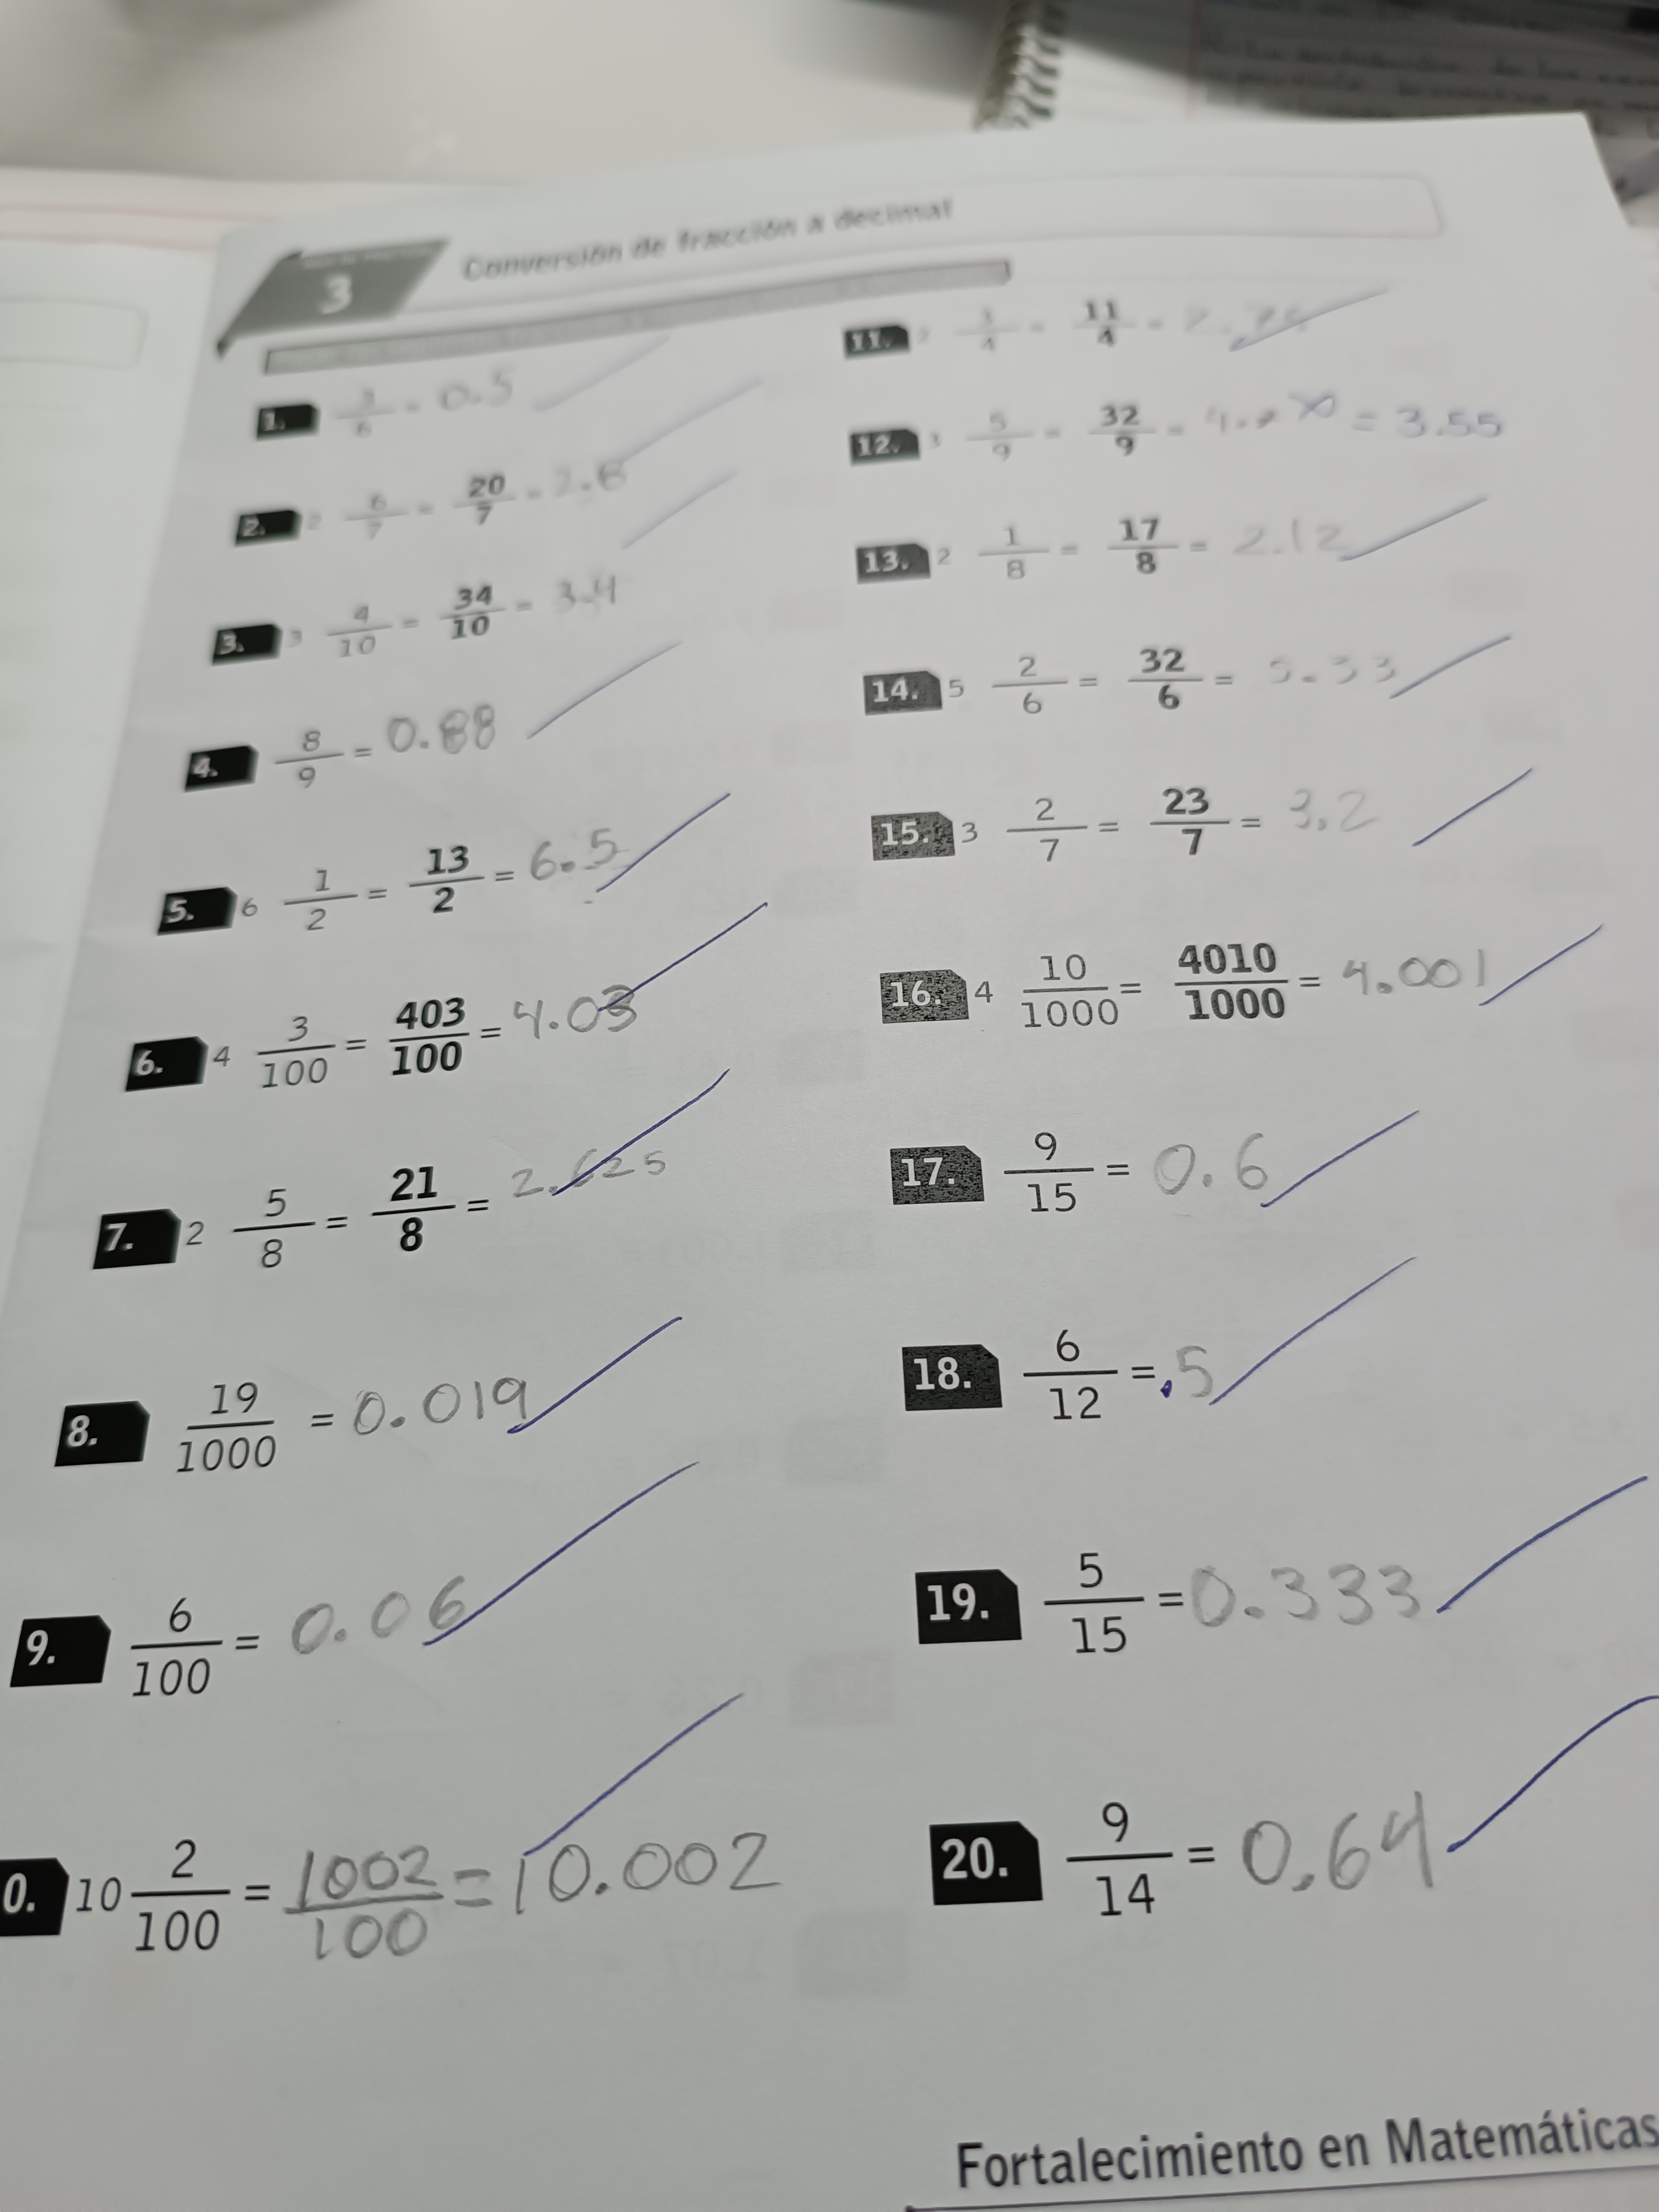 3
Conversión de fracción a decimal
1. 3/6 = 0.5
2. 2 6/7 = 20/7 = 2.8
3. 3 4/10 = 34/10 = 3.4
4. 8/9 = 0.88
5. 6 1/2 = 13/2 = 6.5
6. 4 3/100 = 403/100 = 4.03
7. 2 5/8 = 21/8 = 2.625
8. 19/1000 = 0.019
9. 6/100 = 0.06
0. 10 2/100 = 1002/100 = 10.002
11. 2 3/4 = 11/4 = 2.75
12. 3 5/9 = 32/9 = = 3.55
13. 2 1/8 = 17/8 = 2.12
14. 5 2/6 = 32/6 = 5.33
15. 3 2/7 = 23/7 = 3.2
16. 4 10/1000 = 4010/1000 = 4.001
17. 9/15 = 0.6
18. 6/12 = .5
19. 5/15 = 0.333
20. 9/14 = 0.64
Fortalecimiento en Matemáticas